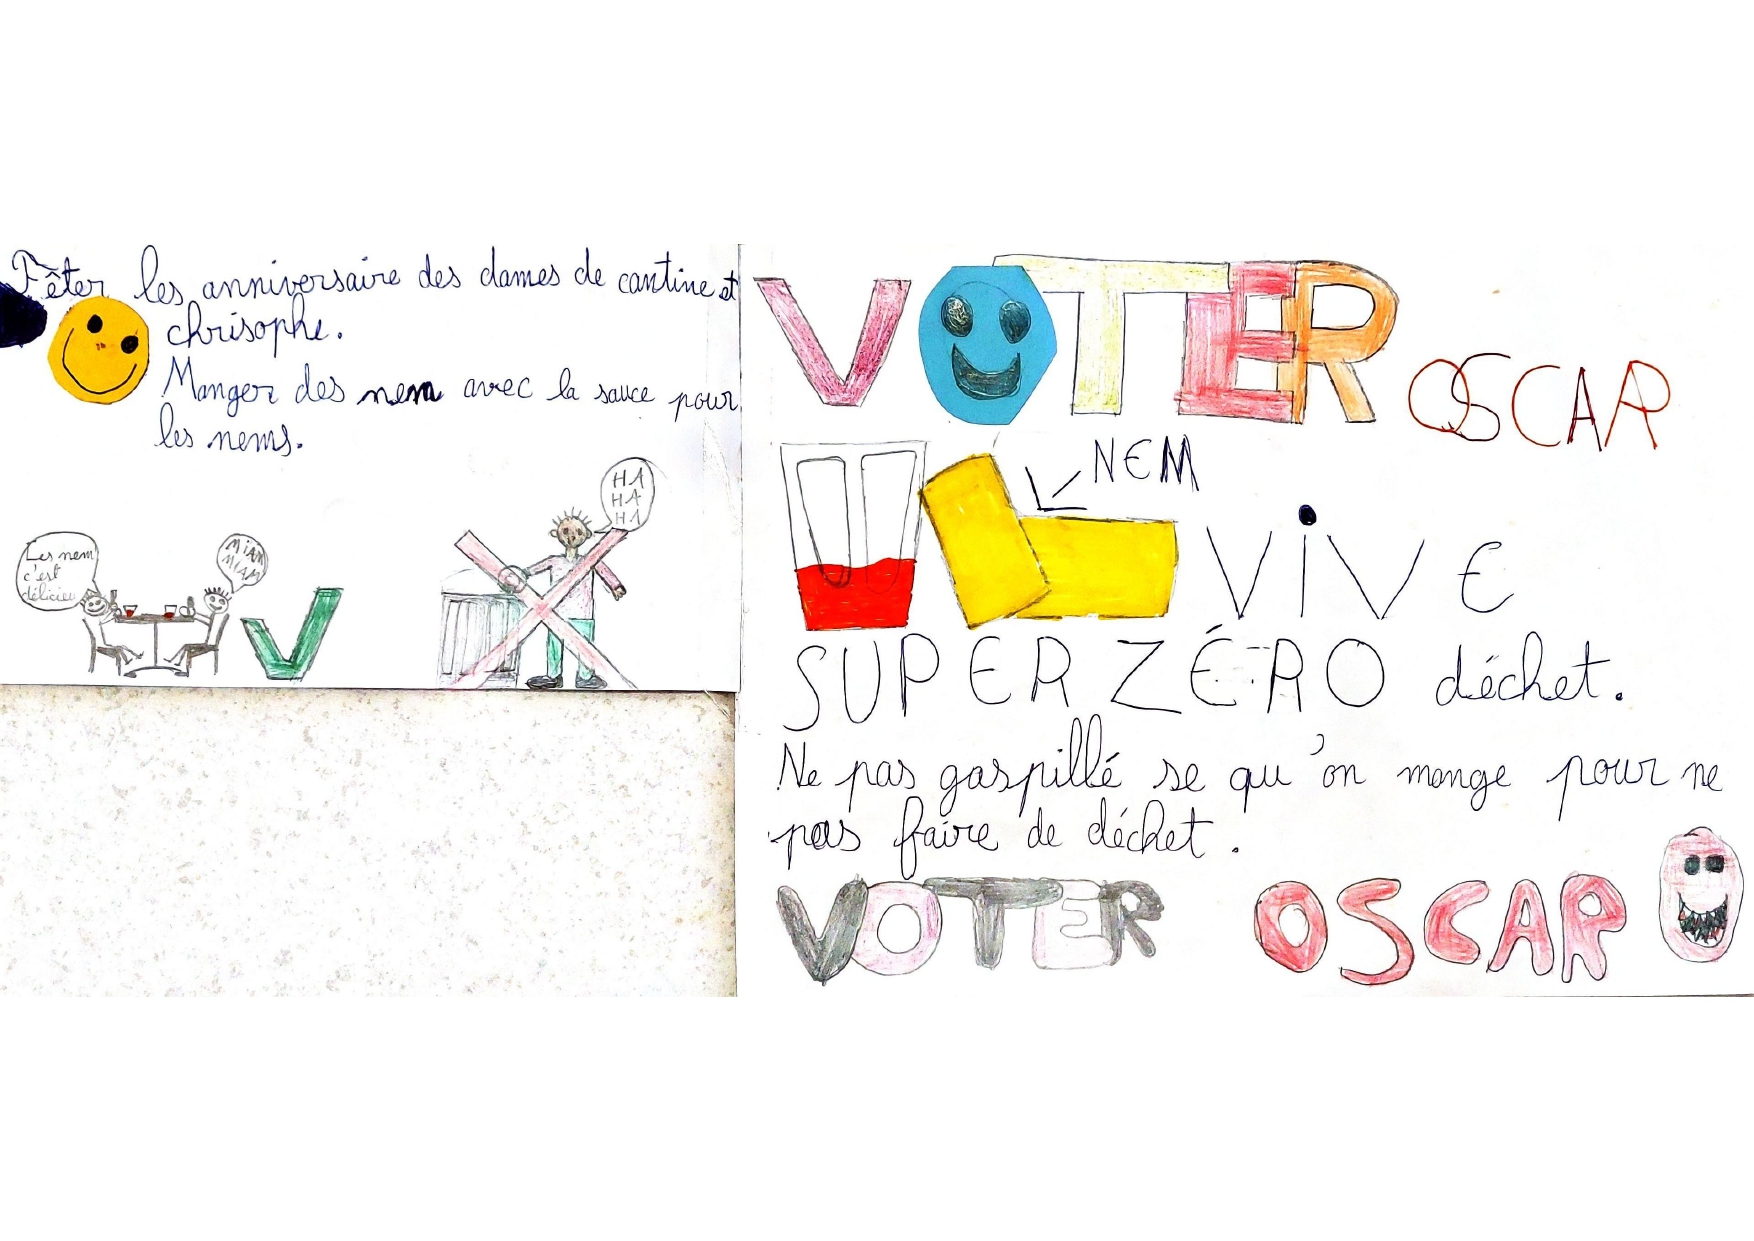 Fêter les anniversaire des dames de cantine et
chrisophe.
Manger des nem avec la sauce pour
les nems.
Les nem
c'est
délicieu
MIAM
MIAM
HA
HA
HA
VOTER OSCAR
NEM
VIVE
SUPER ZÉRO déchet.
Ne pas gaspillé se qu'on mange pour ne
pas faire de déchet.
VOTER OSCAR